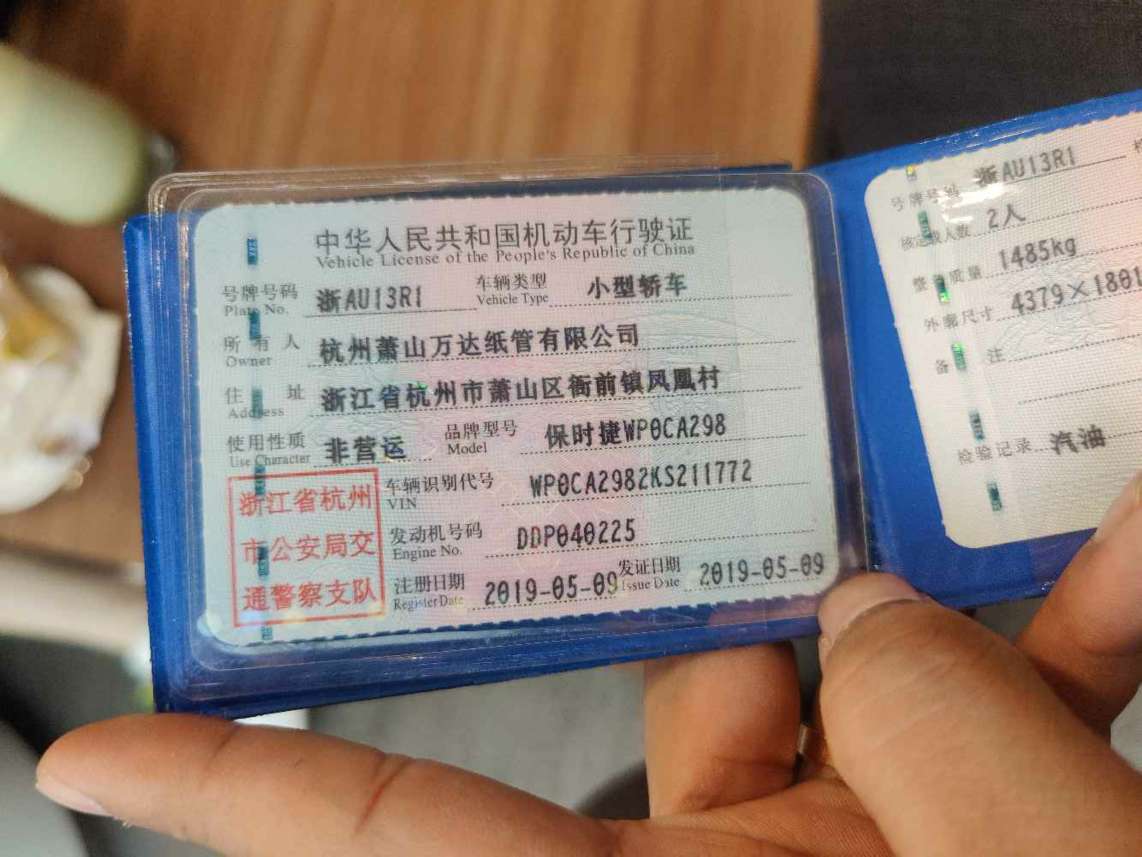 中华人民共和国机动车行驶证
Vehicle License of the People's Republic of China
号牌号码 浙AU13R1 车辆类型 小型轿车
Plate No. Vehicle Type
所有人 杭州萧山万达纸管有限公司
Owner
住址 浙江省杭州市萧山区衙前镇凤凰村
Address
使用性质 非营运 品牌型号 保时捷WP0CA298
Use Character Model
浙江省杭州
市公安局交
通警察支队
车辆识别代号 WP0CA2982KS211772
VIN
发动机号码 DDP040225
Engine No.
注册日期 2019-05-09 发证日期 2019-05-09
Register Date Issue Date
号牌号码 浙AU13R1
核定载人数 2人
整备质量 1485kg
外廓尺寸 4379×1801
备注
检验记录 汽油